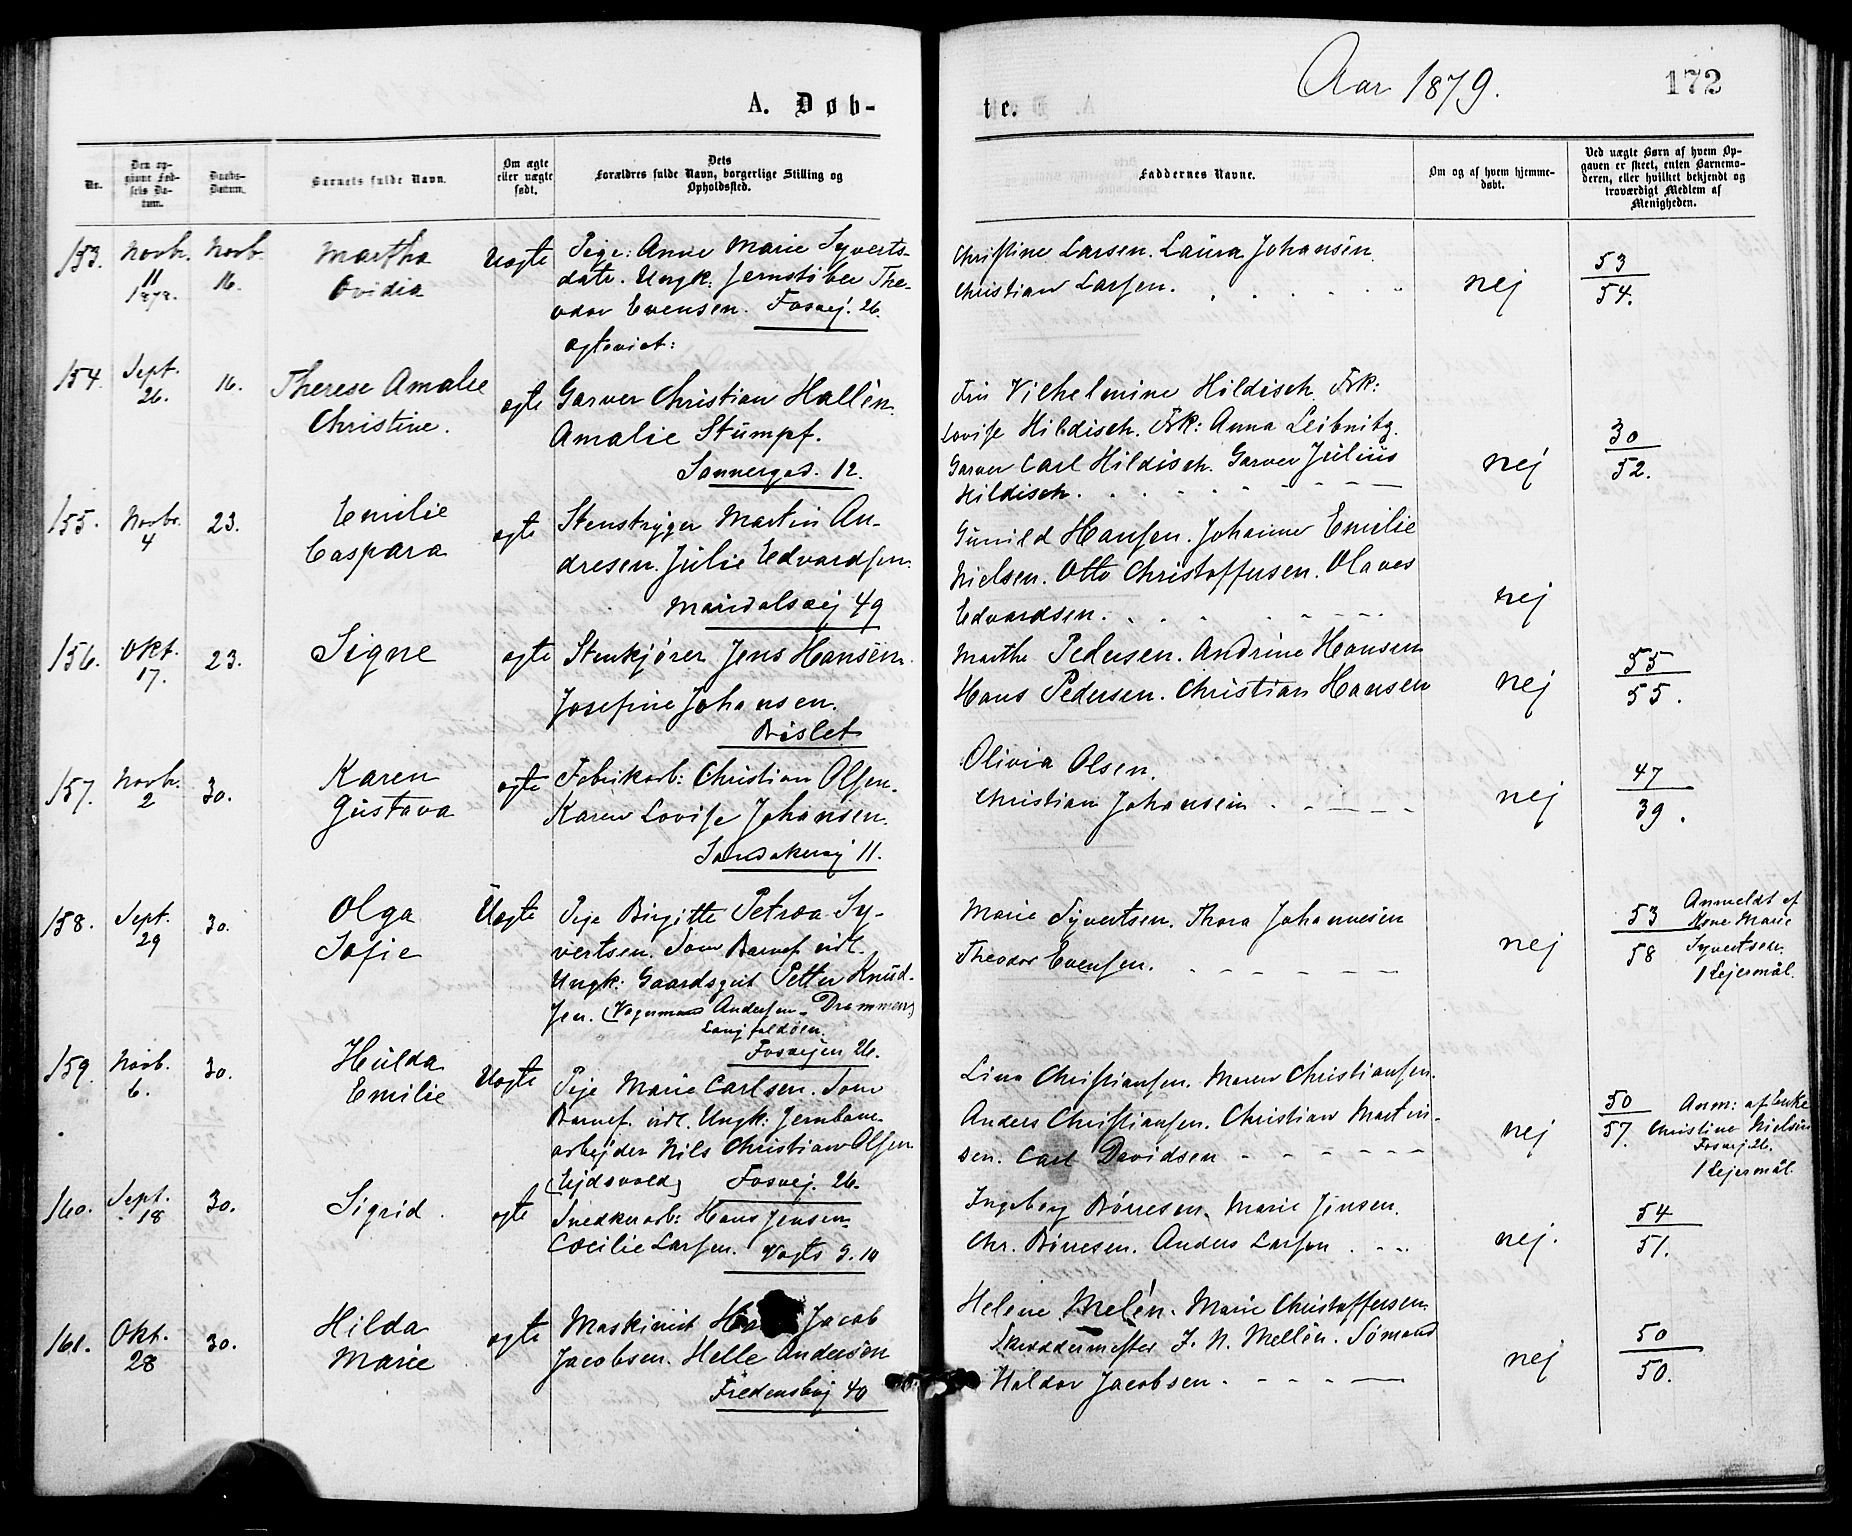 A. Døb-
Nr.
Den op-
givne Fød-
sels Da-
tum.
Daabs-
Datum.
Barnets fulde Navn.
Om ægte
eller uægte
født.
Dets
Forældres fulde Navn, borgerlige Stilling og
Opholdssted.
153. Novbr. 11 1878. Novb. 16. Martha Uægte Pige: Anne Marie Syverts-
Ovidia datt. Ungk: Jernstøber The-
odor Evensen. Fosvej. 26.
ægteviet:
154. Sept. 26. 16. Therese Amalie ægte Garver Christian Hallén.
Christine. Amalie Stumpf.
Sannergad. 12.
155. Novbr. 4 23. Emilie ægte Stenstryger Martin An-
Caspara dresen. Julie Edvardsen.
Maridalsvej 49
156. Okt. 17. 23. Signe ægte Stenkjører Jens Hansen.
Josefine Johansen.
Bislet
157. Novbr. 2 30. Karen ægte Fabrikarb: Christian Olsen.
Gustava Karen Lovise Johansen.
Sandakervej 11.
158. Sept. 29 30. Olga Uægte Pige Birgitte Petrea Sy-
Sofie vertsen. Som Barnef. udl.
Ungk: Gaardsgut Petter Knud-
sen. Andersen Drammen)
Fosvejen 26.
159. Novb. 6. 30. Hulda Uægte Pige Marie Carlsen. Som
Emilie Barnef. udl. Ungk: Jernbane-
arbejder Nils Christian Olsen
(Ejdsvold) Fosvej. 26.
160. Sept. 18 30. Sigrid. ægte Snedkerarb: Hans Jensen
Cæcilie Larsen. Vogts g. 10
161. Okt. 28 30. Hilda ægte Maskinist Jacob
Marie Jacobsen. Helle Andersen
Fredensbvj 40
te.
Aar 1879.
172
Faddernes Navne.
Om og af hvem hjemme-
døbt.
Ved uægte Børn af hvem Op-
gaven er skeet, enten Barnemo-
deren, eller hvilket bekjendt og
troværdigt Medlem af
Menigheden.
Christine Larsen. Laura Johansen.
Christian Larsen. nej 53/54.
Fru Vilhelmine Hildisch. Frk:
Lovise Hildisch. Frk: Anna Leibnitz.
Garver Carl Hildisch. Garver Julius nej 30/52.
Hildisch.
Gunild Hansen. Johanne Emilie
Nielsen. Otto Christoffersen. Olaves
Edvardsen. nej
Marthe Pedersen. Andrine Hansen
Hans Pedersen. Christian Hansen nej 55/55.
Olivia Olsen.
Christian Johansen nej 47/39.
Marie Syvertsen. Thora Johannesen
Theodor Evensen. nej 53/58
Anmeldt af
Kone Marie
Syvertsen.
1 Lejermål.
Lina Christiansen. Maren Christiansen.
Anders Christiansen. Christian Martin-
sen. Carl Davidsen nej 50/57.
Anm: af Enke
Christine Nielsen
Fosvej 26.
1 Lejermål.
Ingeborg Børresen. Marie Jensen.
Chr. Børresen. Anders Larsen nej. 54/51.
Helene Melén. Marie Christoffersen
Skræddermester J. N. Mellén. Sømand
Haldor Jacobsen. nej 50/50.